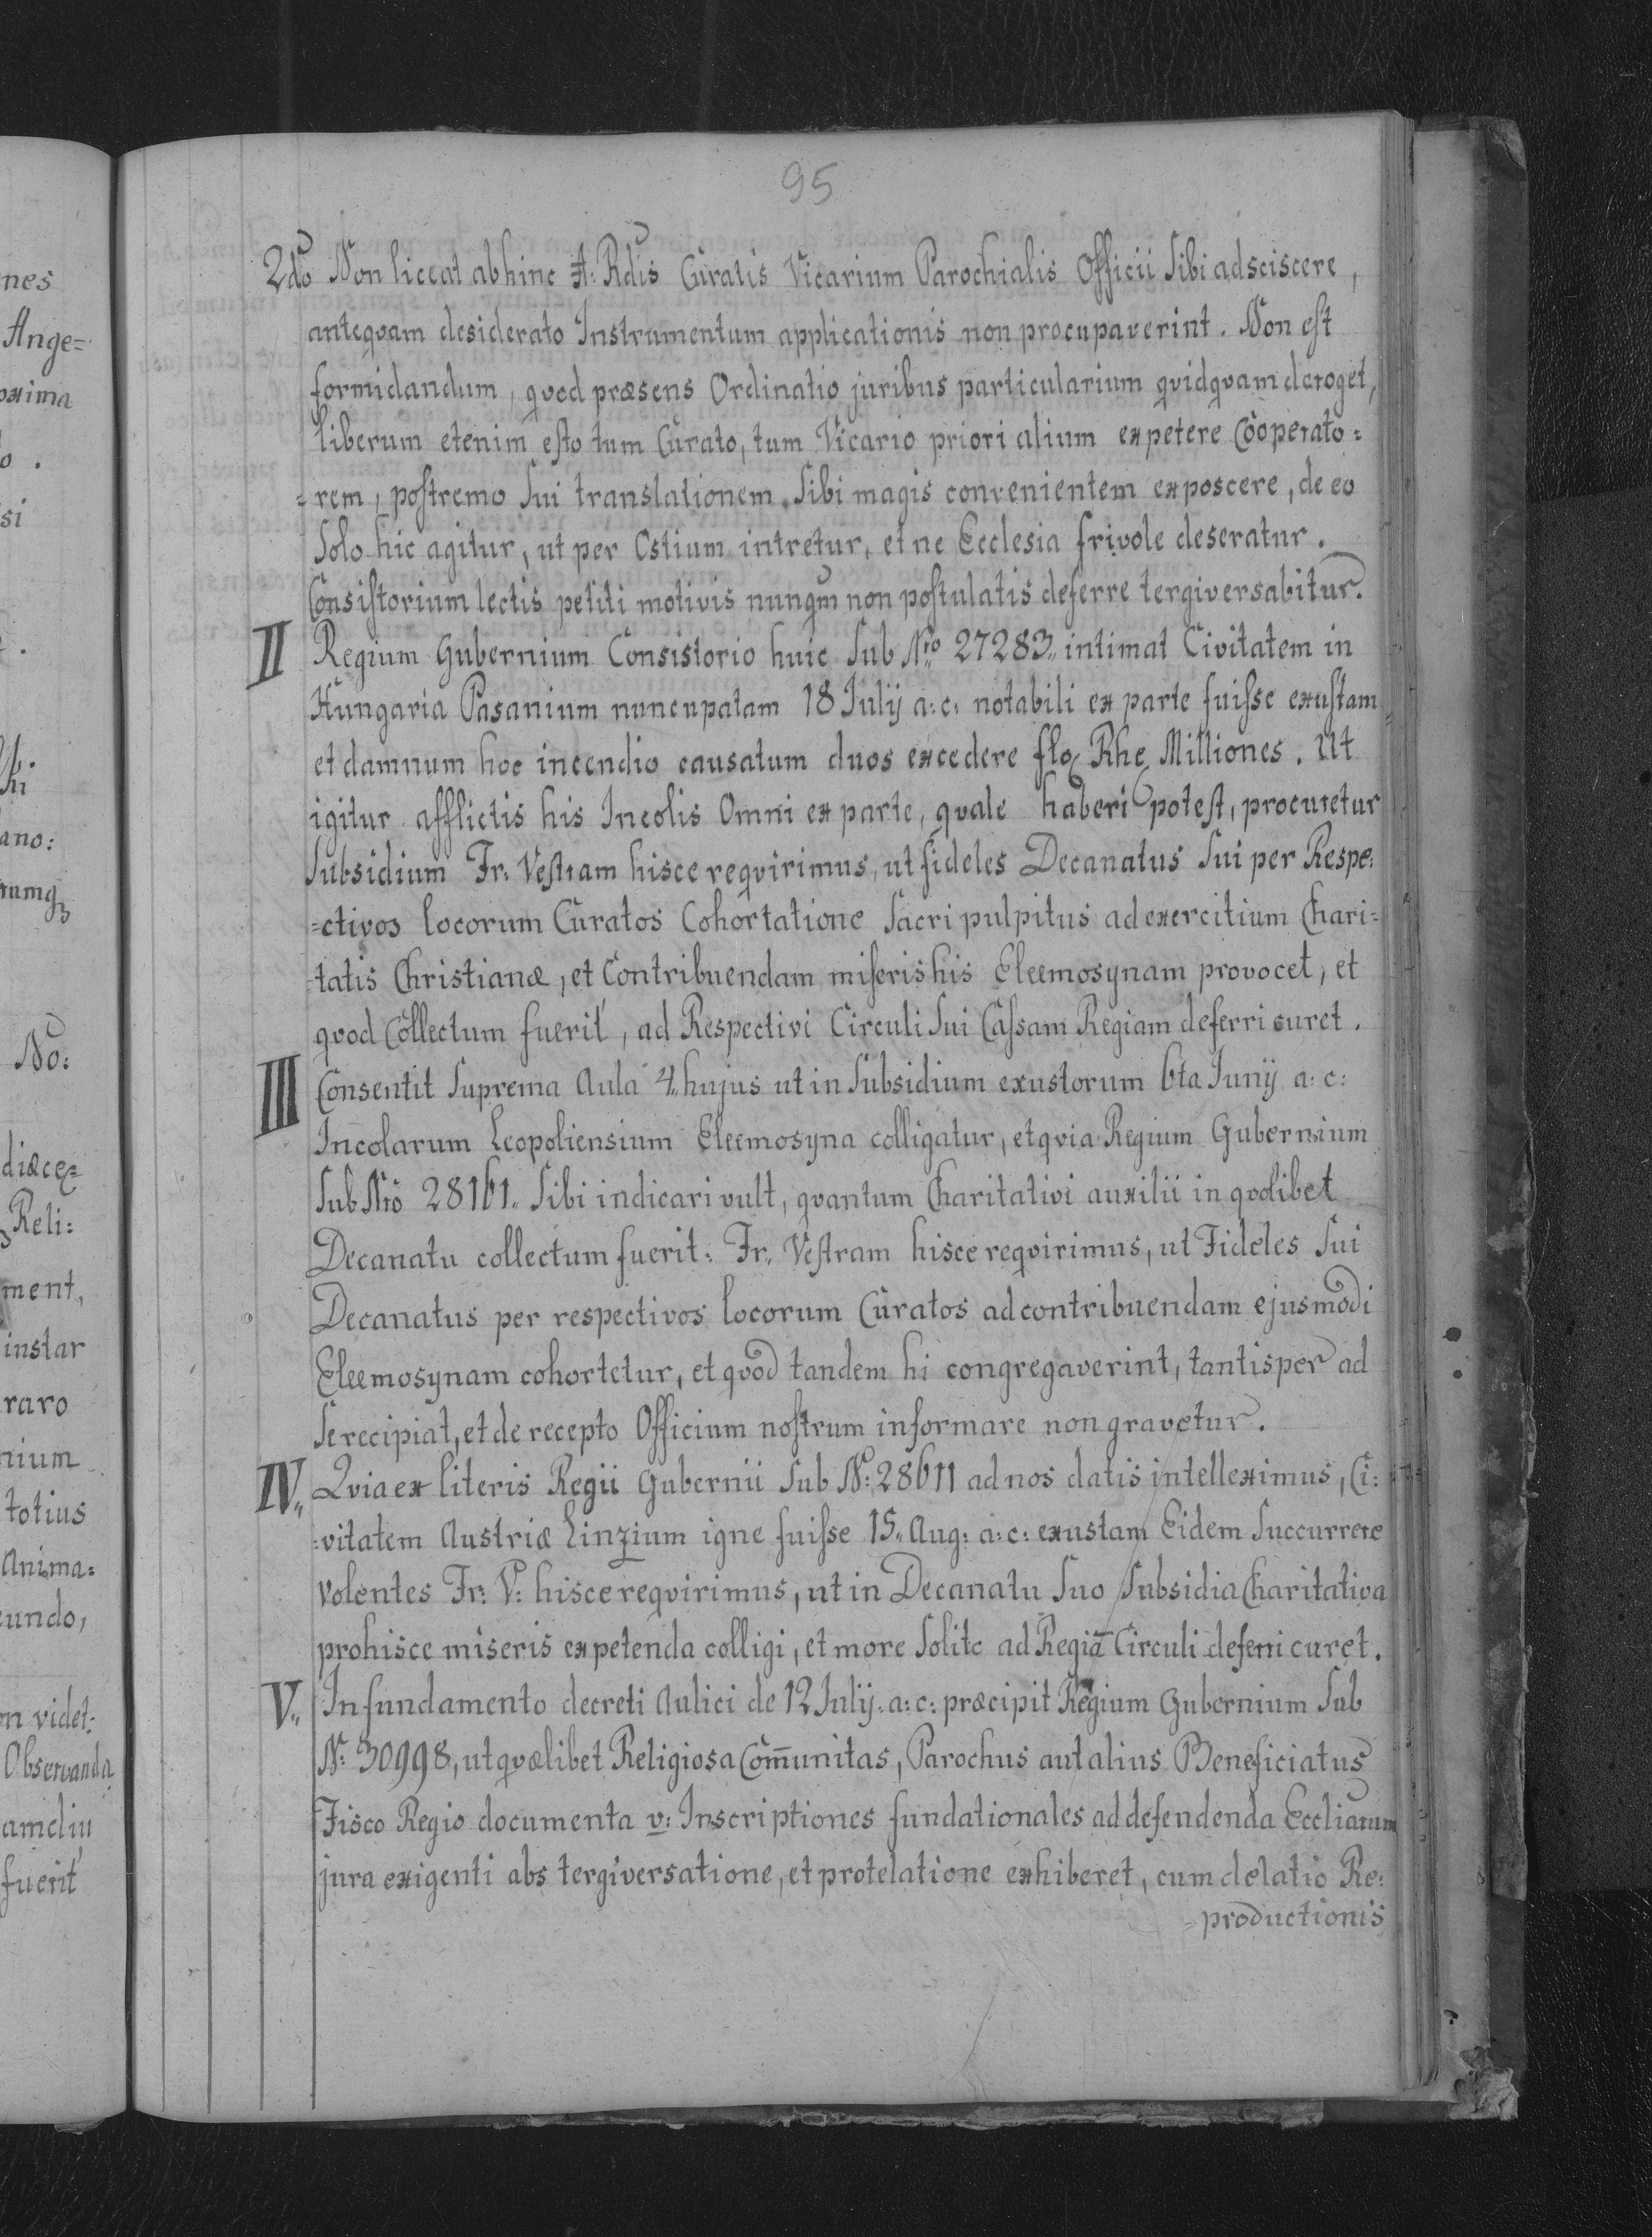 95
2do Non liceat abhinc A: Rdis Curatis Vicarium Parochialis Officii Sibi adsciscere,
anteqvam desiderato Instrumentum applicationis non procupaverint. Non est
formidandum, qvod præsens Ordinatio juribus particularium qvidqvam deroget,
liberum etenim esto tum Curato, tum Vicario priori alium expetere Cooperato=
=rem, postremo Sui translationem Sibi magis convenientem exposcere, de eo
Solo hic agitur, ut per Ostium intretur, et ne Ecclesia frivole deseratur.
Consistorium lectis petiti motivis nunqm non postulatis deferre tergiversabitur.
II Regium Gubernium Consistorio huic Sub Nro 27283„ intimat Civitatem in
Hungaria Pasanium nuncupatam 18 Julij a: c: notabili ex parte fuisse exustam
et damnum hoc incendio causatum duos excedere flo Rhe Milliones. Ut
igitur afflictis his Incolis Omni ex parte, qvale haberi potest, procuretur
Subsidium Fr: Vestram hisce reqvirimus, ut fideles Decanatus Sui per Respe=
=ctivos locorum Curatos Cohortatione Sacri pulpitus ad exercitium Chari=
=tatis Christianæ, et Contribuendam miseris his Eleemosynam provocet, et
qvod Collectum fuerit, ad Respectivi Circuli Sui Cassam Regiam deferri curet.
III Consentit Suprema Aula 4„ hujus ut in Subsidium exustorum 6ta Junij a: c:
Incolarum Leopoliensium Eleemosyna colligatur, et qvia Regium Gubernium
Sub Nro 28161„ Sibi indicari vult, qvantum Charitativi auxilii in qvolibet
Decanatu collectum fuerit: Fr„ Vestram hisce reqvirimus, ut Fideles Sui
Decanatus per respectivos locorum Curatos ad contribuendam ejusmodi
Eleemosynam cohortetur, et qvod tandem hi congregaverint, tantisper ad
Se recipiat, et de recepto Officium nostrum informare non gravetur.
IV„ Qvia ex literis Regii Gubernii Sub N: 28611 ad nos datis intelleximus, Ci=
=vitatem Austriæ Linzium igne fuisse 15„ Aug: a: c: exustam Eidem Succurrere
volentes Fr: V: hisce reqvirimus, ut in Decanatu Suo Subsidia Charitativa
pro hisce miseris expetenda colligi, et more Solito ad Regiā Circuli deferri curet.
V„ In fundamento decreti Aulici de 12 Julij a: c: præcipit Regium Gubernium Sub
N: 30998, ut qvælibet Religiosa Com̄unitas, Parochus aut alius Beneficiatus
Fisco Regio documenta v: Inscriptiones fundationales ad defendenda Eccliarum
jura exigenti abs tergiversatione, et protelatione exhiberet, cum delatio Re=
=productionis
nes
Ange=
oxima
si
ano:
rumq
No:
diæce=
Reli:
ment,
instar
raro
nium
totius
Anima=
cundo,
on videt:
Observanda
amdiu
fuerit